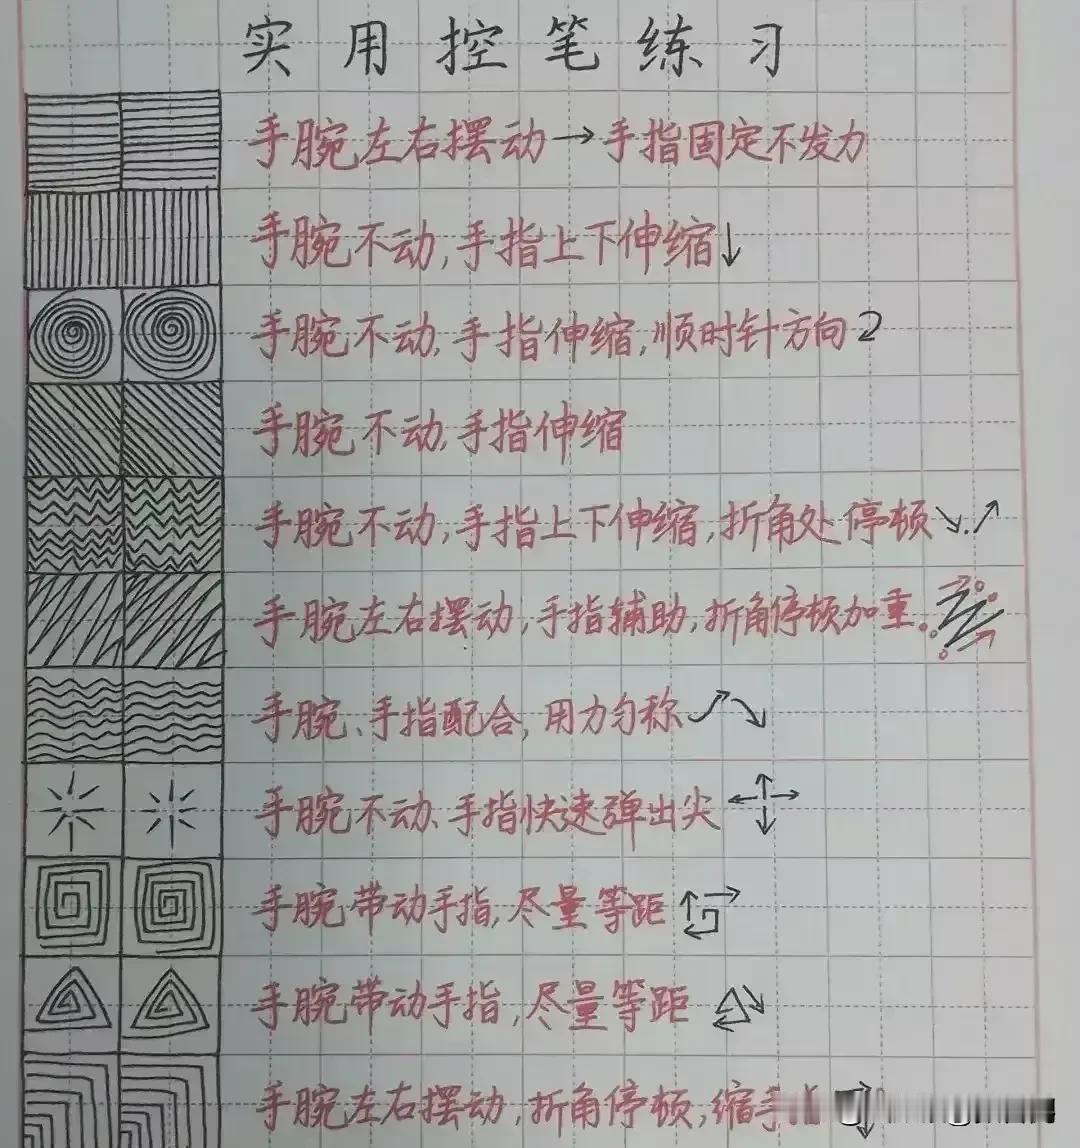 实用控笔练习
手腕左右摆动→手指固定不发力
手腕不动,手指上下伸缩↓
手腕不动,手指伸缩,顺时针方向
手腕不动,手指伸缩
手腕不动,手指上下伸缩,折角处停顿↘.↗
手腕左右摆动,手指辅助,折角停顿加重。
手腕、手指配合,用力匀称
手腕不动、手指快速弹出尖
手腕带动手指,尽量等距
手腕带动手指,尽量等距
手腕左右摆动,折角停顿,缩手